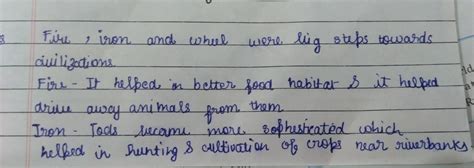 Fire, iron and wheel were big steps towards
civilizations
Fire - It helped in better food habitat & it helped
drive away animals from them
Iron - Tools became more sophesticated which
helped in hunting & cultivation of crops near riverbanks